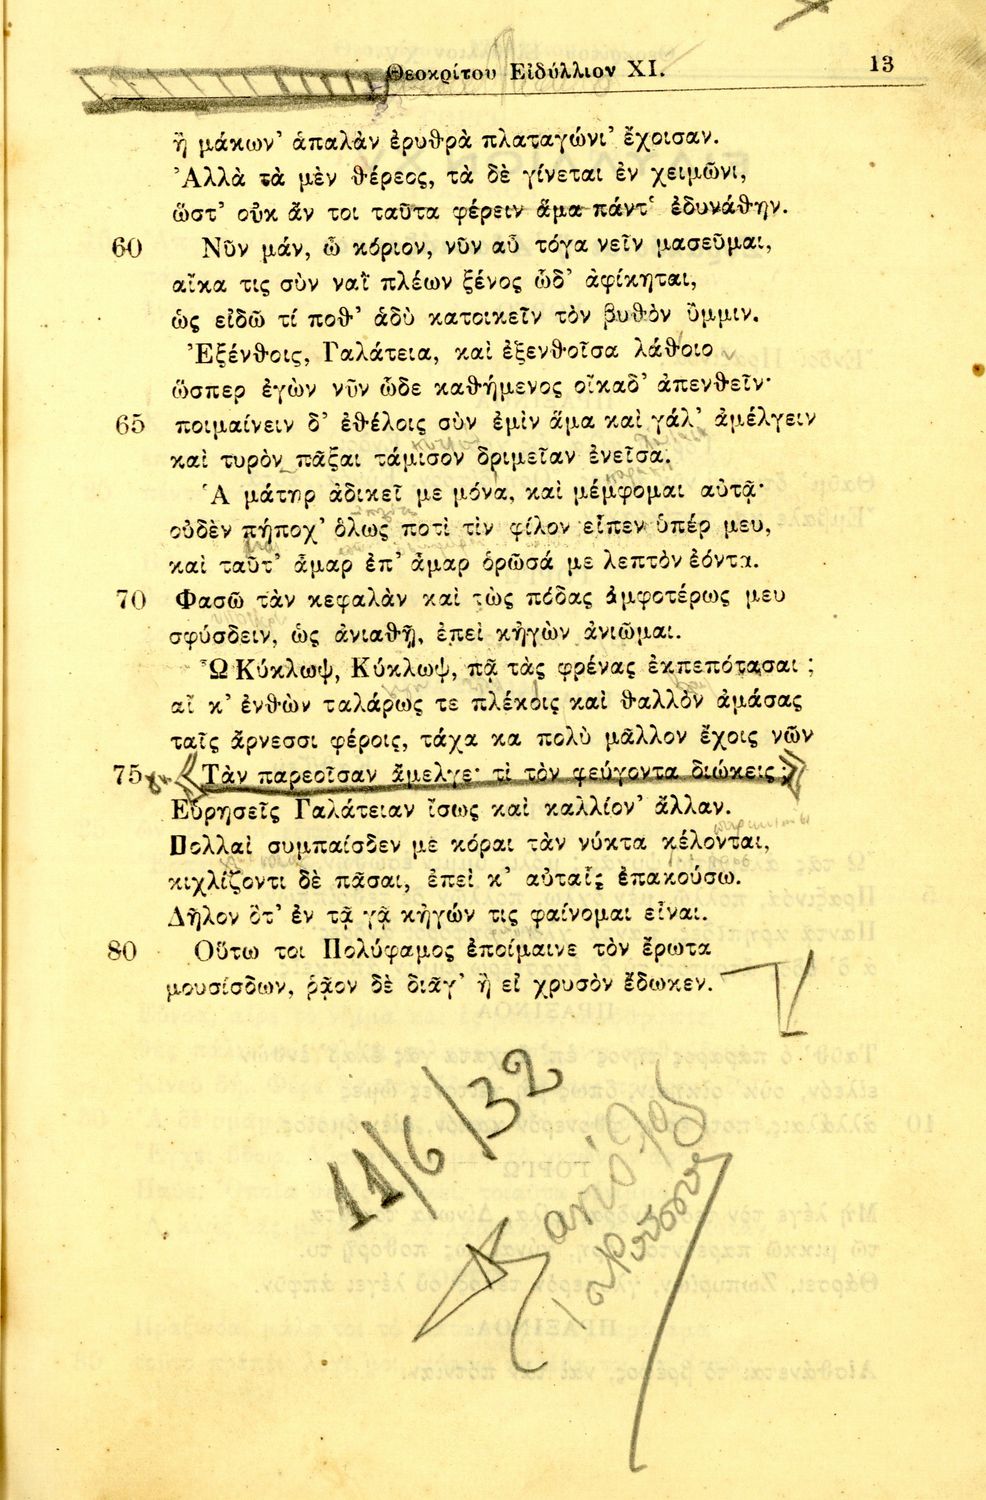 Θεοκρίτου Εἰδύλλιον XI.
13
ἢ μάκων' ἁπαλὰν ἐρυθρὰ πλαταγώνι' ἔχοισαν.
Ἀλλὰ τὰ μὲν θέρεος, τὰ δὲ γίνεται ἐν χειμῶνι,
ὥστ' οὐκ ἄν τοι ταῦτα φέρειν ἅμα πάντ' ἐδυνάθην.
60 Νῦν μάν, ὦ κόριον, νῦν αὖ τόγα νεῖν μασεῦμαι,
αἴκα τις σὺν ναῒ πλέων ξένος ὧδ' ἀφίκηται,
ὡς εἰδῶ τί ποθ' ἁδὺ κατοικεῖν τὸν βυθὸν ὔμμιν.
Ἐξένθοις, Γαλάτεια, καὶ ἐξενθοῖσα λάθοιο
ὥσπερ ἐγὼν νῦν ὧδε καθήμενος οἴκαδ' ἀπενθεῖν·
65 ποιμαίνειν δ' ἐθέλοις σὺν ἐμὶν ἅμα καὶ γάλ' ἀμέλγειν
καὶ τυρὸν πᾶξαι τάμισον δριμεῖαν ἐνεῖσα.
Ἁ μάτηρ ἀδικεῖ με μόνα, καὶ μέμφομαι αὐτᾷ·
οὐδὲν πήποχ' ὅλως ποτὶ τὶν φίλον εἶπεν ὑπέρ μευ,
καὶ ταῦτ' ἆμαρ ἐπ' ἆμαρ ὁρῶσά με λεπτὸν ἐόντα.
70 Φασῶ τὰν κεφαλὰν καὶ τὼς πόδας ἀμφοτέρως μευ
σφύσδειν, ὡς ἀνιαθῇ, ἐπεὶ κἠγὼν ἀνιῶμαι.
Ὦ Κύκλωψ, Κύκλωψ, πᾷ τὰς φρένας ἐκπεπότασαι ;
αἴ κ' ἐνθὼν ταλάρως τε πλέκοις καὶ θαλλὸν ἀμάσας
ταῖς ἄρνεσσι φέροις, τάχα κα πολὺ μᾶλλον ἔχοις νῶν
75 Τὰν παρεοῖσαν ἄμελγε· τὶ τὸν φεύγοντα διώκεις ;
Εὑρησεῖς Γαλάτειαν ἴσως καὶ καλλίον' ἄλλαν.
Πολλαὶ συμπαίσδεν με κόραι τὰν νύκτα κέλονται,
κιχλίζοντι δὲ πᾶσαι, ἐπεὶ κ' αὐταῖς ἐπακούσω.
Δῆλον ὅτ' ἐν τᾷ γᾷ κἠγών τις φαίνομαι εἶναι.
80 Οὕτω τοι Πολύφαμος ἐποίμαινε τὸν ἔρωτα
μουσίσδων, ῥᾷον δὲ διᾶγ' ἢ εἰ χρυσὸν ἔδωκεν.
11/6/32